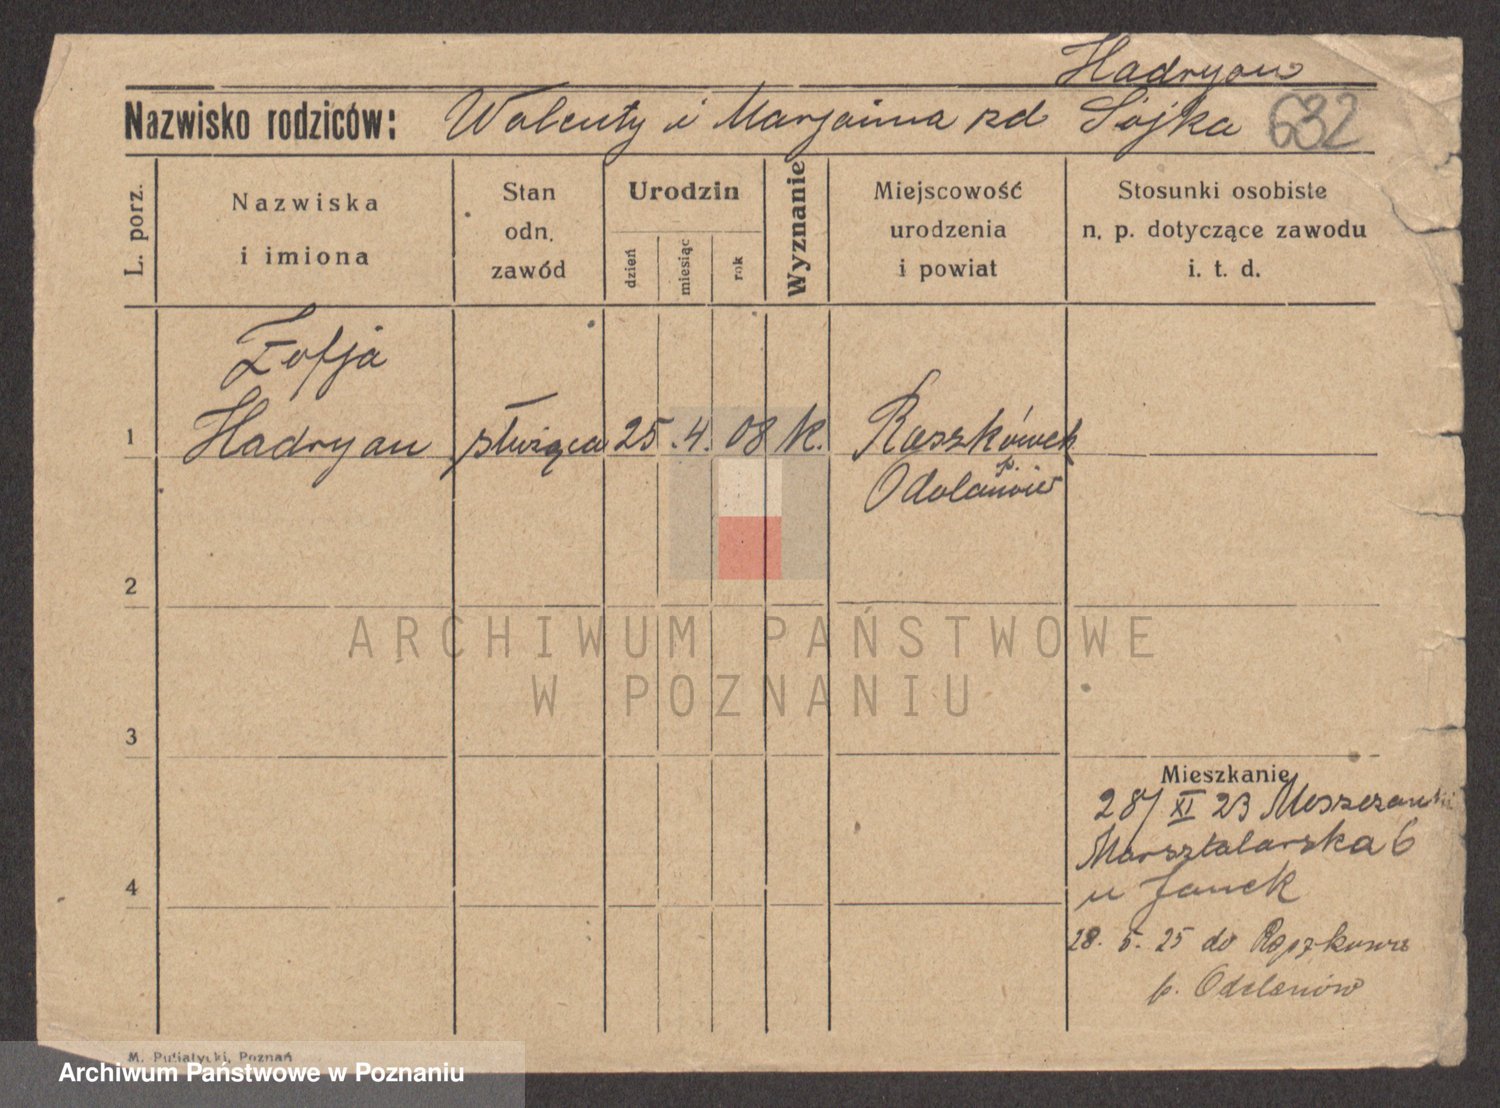 Hadryan
Nazwisko rodziców: Walenty i Marjanna rd Sójka 632
L. porz.
Nazwiska
i imiona
Stan
odn.
zawód
Urodzin
dzień
miesiąc
rok
Wyznanie
Miejscowość
urodzenia
i powiat
Stosunki osobiste
n. p. dotyczące zawodu
i. t. d.
Zofja
1 Hadryan służąca 25. 4. 08 k. Raszkówek
p.
Odolanów
2
ARCHIWUM PAŃSTWOWE
W POZNANIU
3
Mieszkanie
28/XI 23
Marsztalarska 6
u Janek
4
28. 5. 25 do
p. Odolanów
M. Putiatycki, Poznań
Archiwum Państwowe w Poznaniu